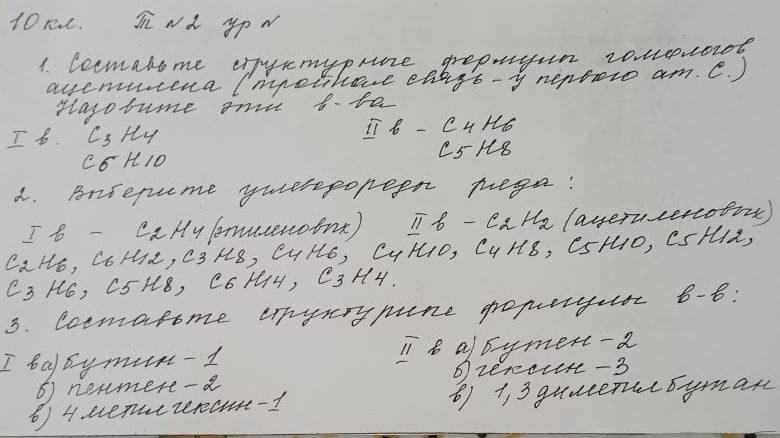 10 кл. Т №2 ур №
1. Составьте структурные формулы гомологов
ацетилена (тройная связь - у первого ат. С.)
Назовите эти в-ва
I в. C3H4 II в - C4H6
C6H10 C5H8
2. Выберите углеводороды ряда:
I в - C2H4 (этиленовых) II в - C2H2 (ацетиленовых)
C2H6, C6H12, C3H8, C4H6, C4H10, C4H8, C5H10, C5H12,
C3H6, C5H8, C6H14, C3H4.
3. Составьте структурные формулы в-в:
I в а) бутин-1 II в а) бутен-2
б) пентен-2 б) гексин-3
в) 4 метилгексин-1 в) 1,3 диметилбутан